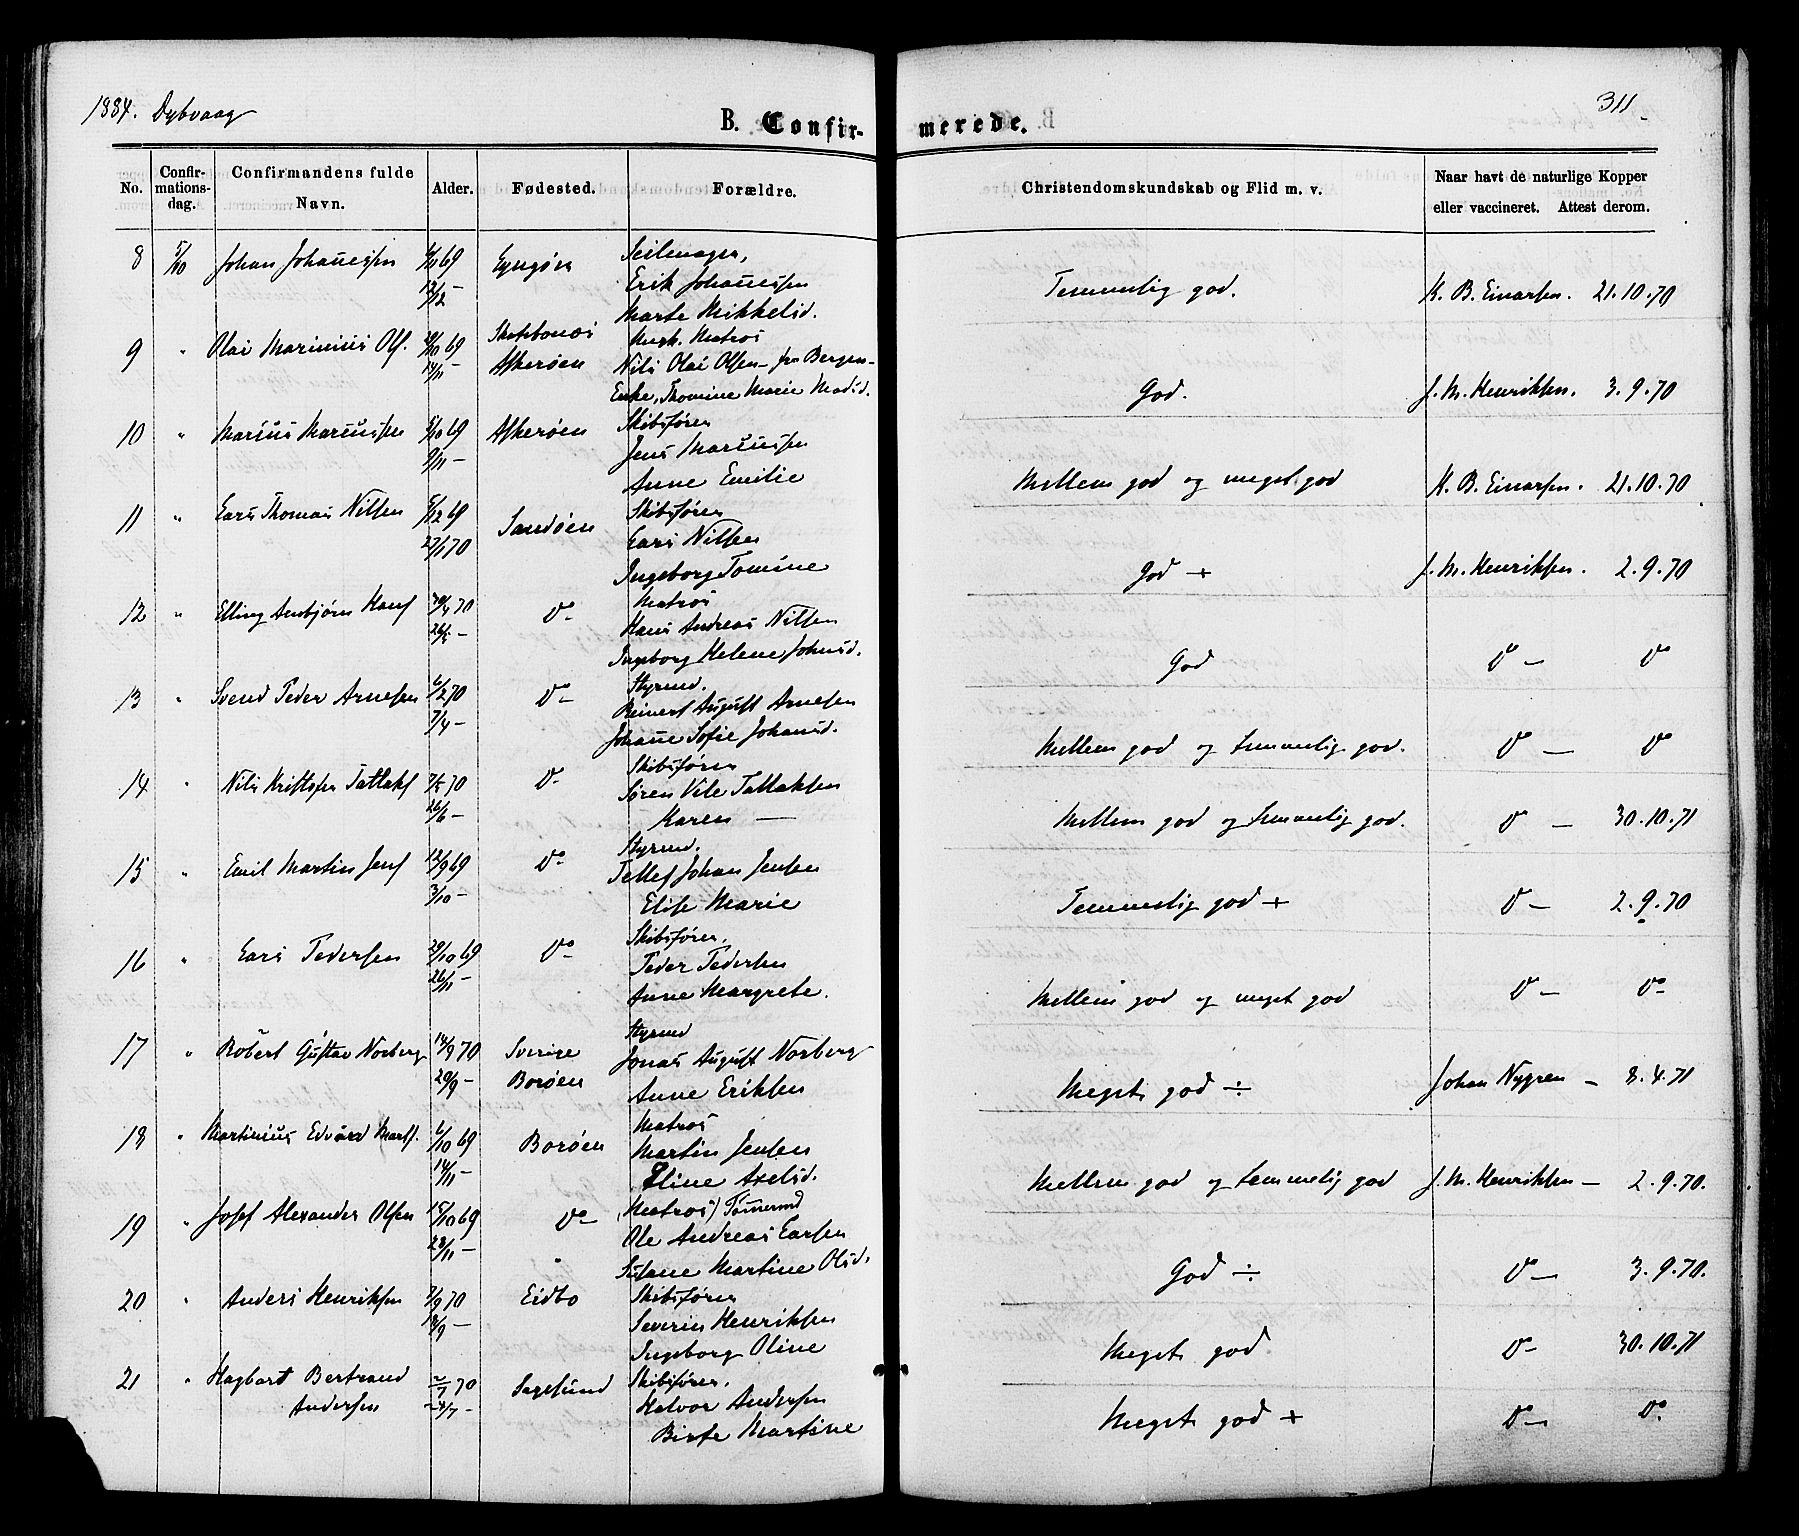 1884. Dybvaag
311
B. Confir-
merede.
No.
Confir-
mations-
dag.
Confirmandens fulde
Navn.
Alder.
Fødested.
Forældre.
Christendomskundskab og Flid m. v.
Naar havt de naturlige Kopper
eller vaccineret. Attest derom.
8 5/10 Johan Johannessen 69 Lyngøen Seilmager,
12/12 – Erik Johannessen
Marte Mikkelsd.
Temmelig god. K. B. Einarsen. 21.10.70
9 " Olai Marinius Ols. /10 69 Askerøen Matros
/11 – Nils Olai Olsen – fra Bergen –
Enke, Thomine Marie Madsd.
God. J. M. Henriksen. 3.9.70
10 " Marius Mariussen /10 69 Askerøen Skibsfører
9/11 – Jens Mariussen
Anne Emilie
Mellem god og meget god K. B. Einarsen. 21.10.70
11 " Lars Thomas Nilsen /12 69 Sandøen Skibsfører
27/1 70 Lars Nilsen
Ingeborg Tomine
God + J. M. Henriksen. 2.9.70
12 " Elling Anbjørn Hans 70 Do Matros
26/5 – Hans Andreas Nilsen
Ingeborg Helene Johnsd.
God Do – Do
13 " Svend Peder Arnesen /2 70 Do – Styrmd.
7/4 – Reinert August Arnesen
Johanne Sofie Johansd.
Mellem god og temmelig god. Do – Do
14 " Nils Kristofer Tallaks 7/5 70 Do Skibsfører
26/6 – Søren Vile Tallaksen
Karen —
Mellem god og temmelig god. Do – 30.10.71
15 " Emil Martin Jens 12/9 69 Do Styrmd.
3/10 – Tellef Johan Jensen
Elise Marie
Temmelig god + Do – 2.9.70
16 " Lars Pedersen 29/10 69 Do – Skibsfører.
26/11 – Peder Pedersen
Anne Margrete.
Mellem god og meget god Do – Do –
17 " Robert Gustav Norberg 14/9 70 Sverige Styrmd
29/9 – Borøen Jonas August Norberg
Anne Eriksen
Meget god ÷ Johan Nygren – 8.4.71
18 " Martinius Edvard Mart. /10 69 Borøen Matros
14/11 – Martin Jensen
Eline Axelsd.
Mellem god og temmelig god J. M. Henriksen – 2.9.70.
19 " Josef Alexander Olsen 15/10 69 Do – (Matros) Tømmermd
28/11 – Ole Andreas Larsen
Susane Martine Olsd.
God ÷ Do – 3.9.70.
20 " Anders Henriksen 7/9 70 Eidbo Skibsfører
18/9 – Severin Henriksen
Ingeborg Oline
Meget god Do – 30.10.71
21 " Hagbart Bertrand /7 70 Sagesund Skibsfører.
Andersen /7 – Halvor Andersen
Birte Martine
Meget god + Do – Do